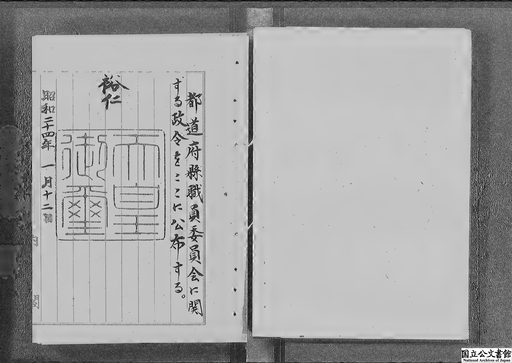 都道府縣職員委員会に関
する政令をここに公布する。
裕仁
天皇
御璽
昭和二十四年一月十二日
内閣
国立公文書館
National Archives of Japan